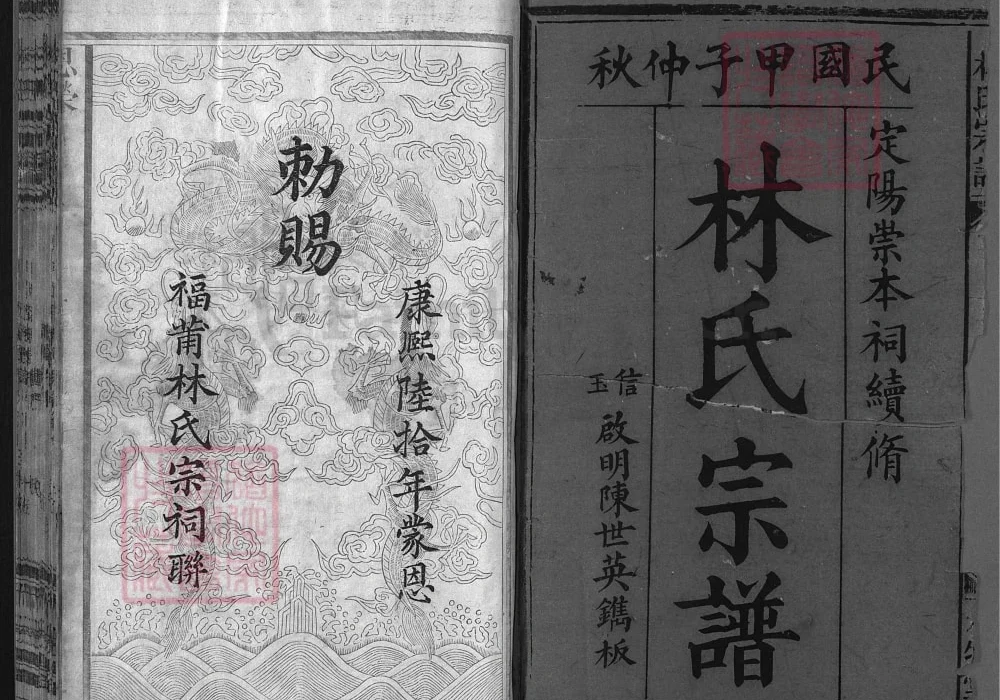 民國甲子仲秋
定陽崇本祠續脩
林氏宗譜
信玉
啟明陳世英鐫板
勅賜
康熙陸拾年蒙恩
福莆林氏宗祠聯